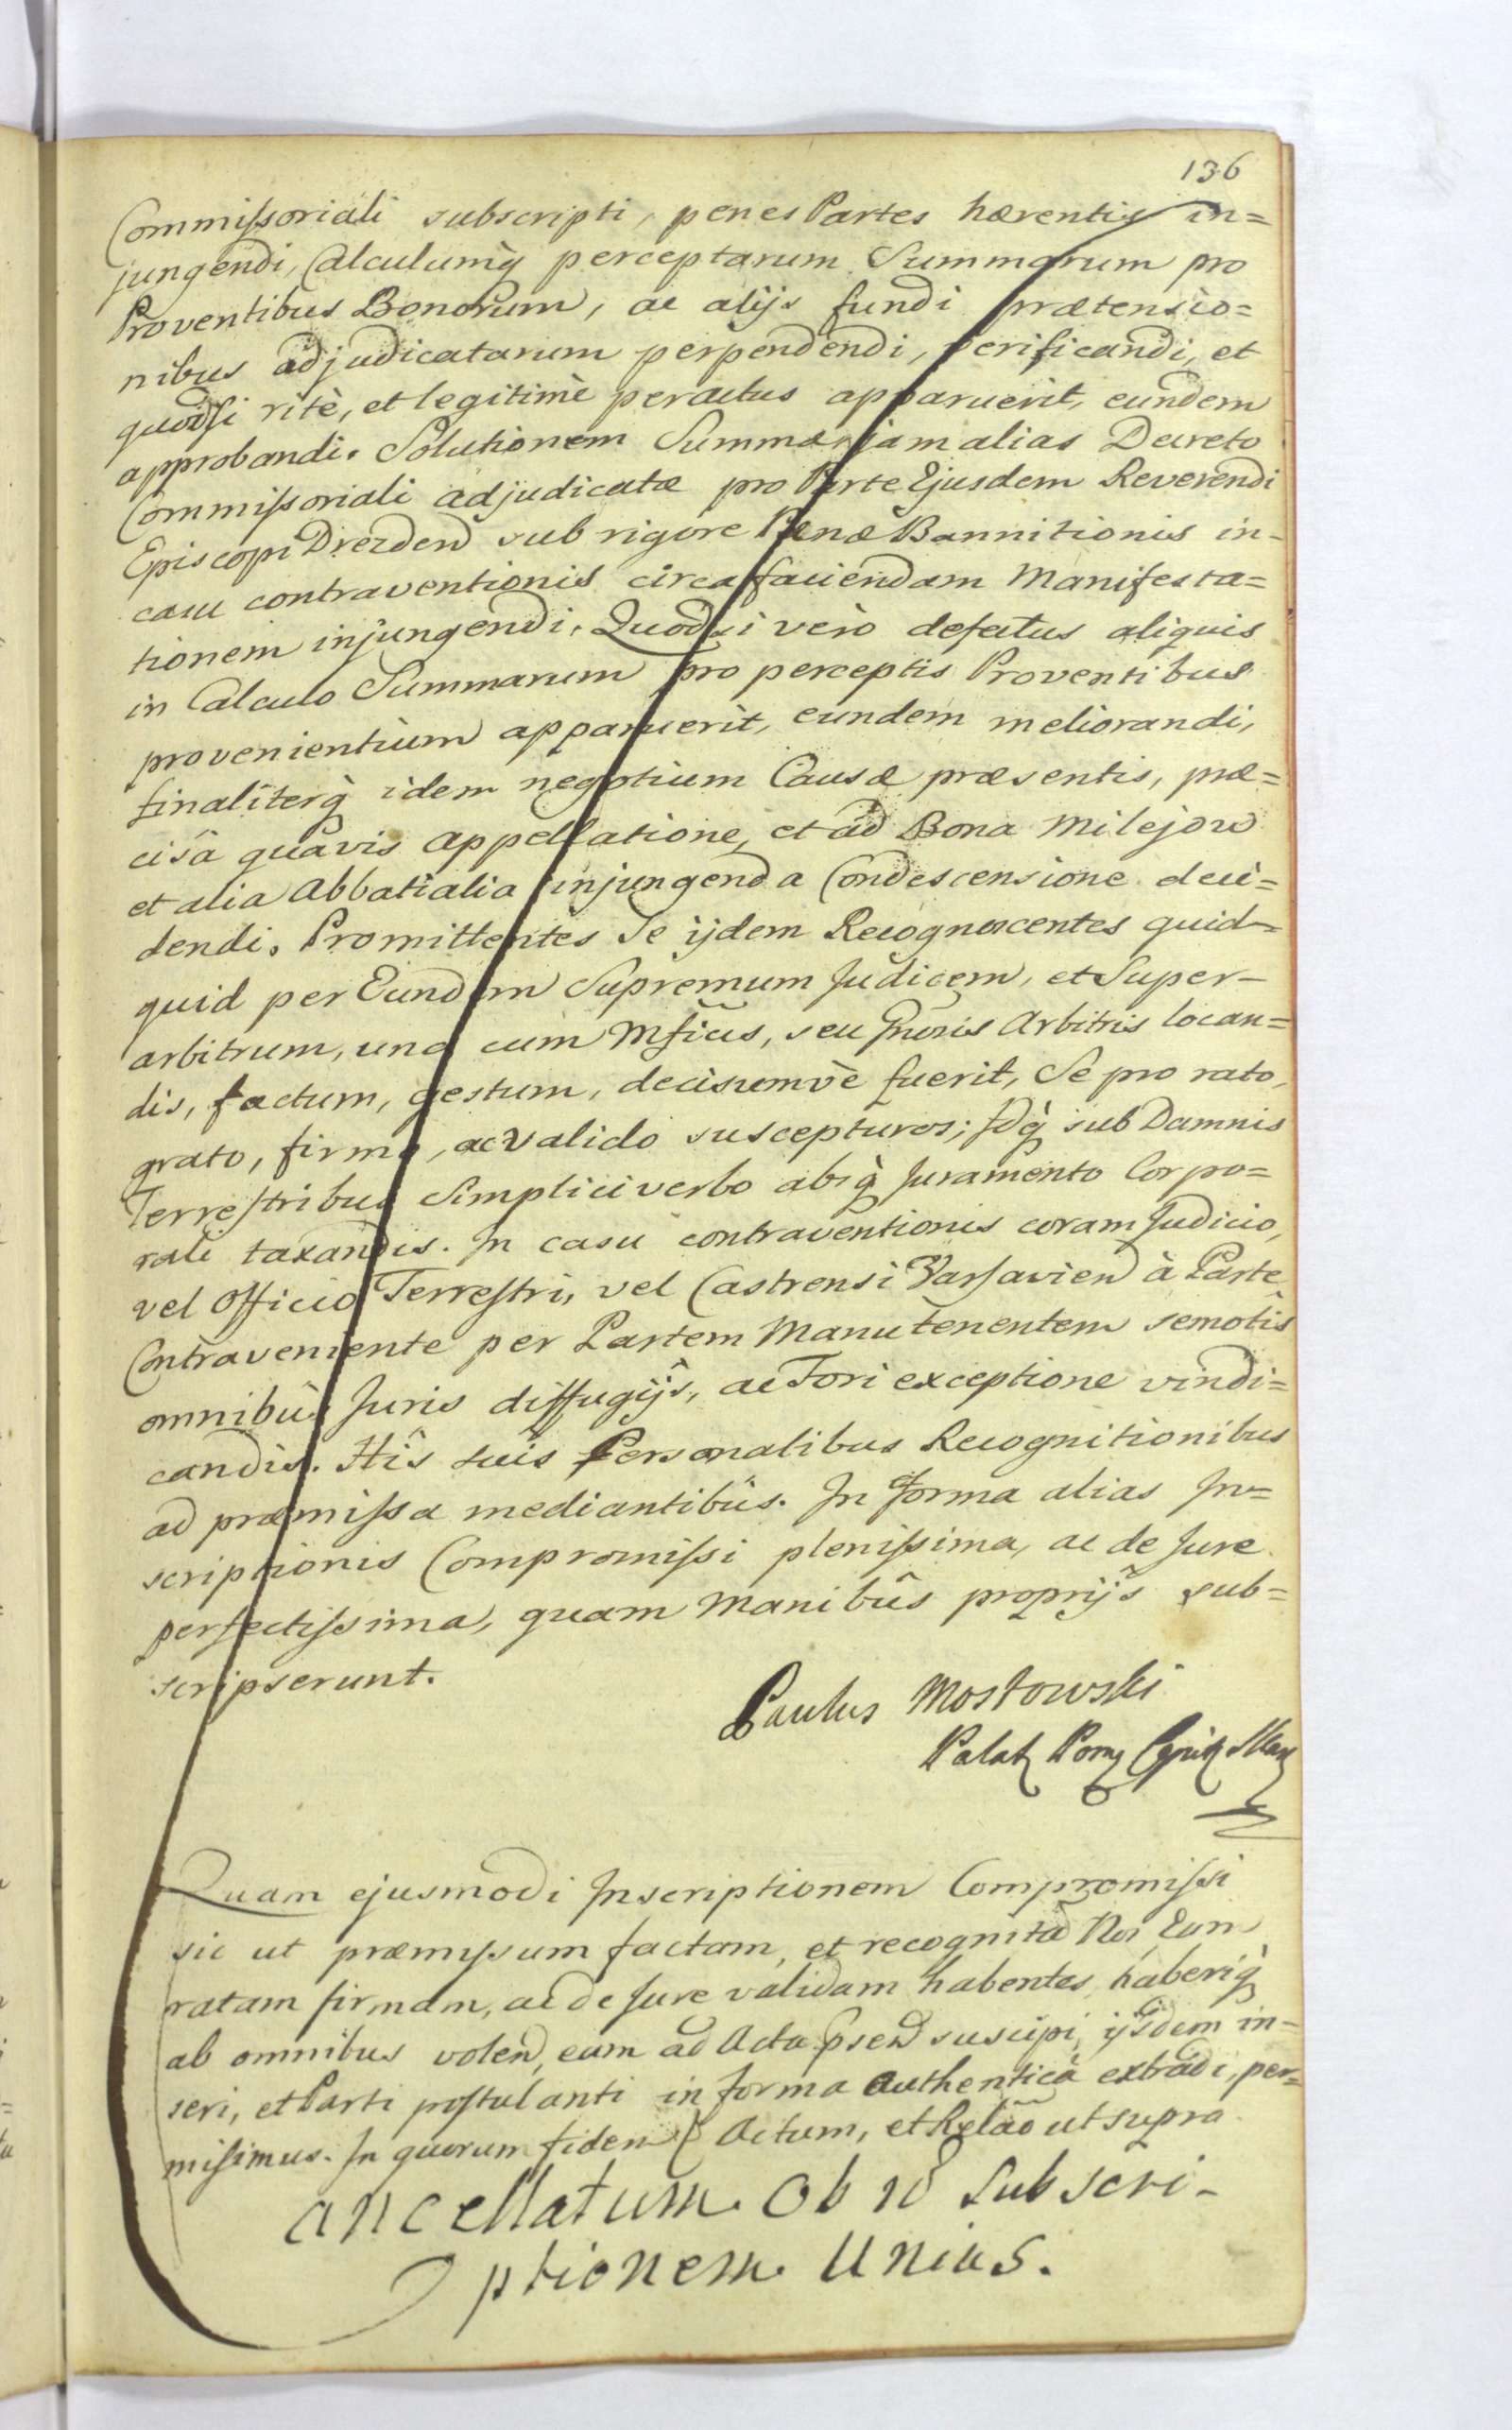 136
Commissoriali subscripti, penes Partes hærentis in=
jungendi, Calculumq̀ perceptarum Summarum pro
Proventibus Bonorum, ac alijs fundi prætensio=
nibus adjudicatarum perpendendi, verificandi, et
quodsi ritè, et legitimè peractus apparuerit, eundem
approbandi. Solutionem Summæ jam alias Decreto
Commissoriali adjudicatæ pro Parte Ejusdem Reverendi
Episcopi Drezden sub rigore Pænæ Bannitionis in-
casu contraventionis circa faciendam Manifesta=
tionem injungendi. Quodsi verò defectus aliquis
in Calculo Summarum pro perceptis Proventibus
provenientium apparuerit, eundem meliorandi,
finaliterq̀ idem negotium Causæ præsentis, præ=
cisâ quavis appellatione, et ad Bona Milejow
et alia Abbatialia injungenda Condescensione deci=
dendi. Promittentes Se ijdem Recognoscentes quid=
quid per Eundem Supremum Judicem, et Super-
arbitrum, una cum Mficis, seu Gnoris Arbitris locan=
dis, factum, gestum, decisumvè fuerit, Se pro rato,
grato, firmo, ac valido suscepturos; Idq̀ sub Damnis
Terrestribus Simplici verbo absq̀ Juramento Corpo=
rali taxandis. In casu contraventionis coram Judicio,
vel Officio Terrestri, vel Castrensi Varsavien à Parte
Contraveniente per Partem Manutenentem semotis
omnibus Juris diffugijs, ac Fori exceptione vindi=
candis. His suis Personalibus Recognitionibus
ad præmissa mediantibus. In forma alias In=
scriptionis Compromissi plenissima, ac de Jure
perfectissima, quam Manibus proprijs sub=
scripserunt.
Paulus Mostowski
Palat Pom
Quam ejusmodi Inscriptionem Compromissi
sic ut præmissum factam, et recognitã Nos Eam
ratam firmam, ac de Jure validam habentes, haberiq̀
ab omnibus volen, eam ad Acta psen suscipi, ijsdem in-
seri, et Parti postulanti in forma authentica extradi, per=
misimus. In quorum fidem Actum, et Relão ut supra
Cancellatum Ob nō Subscri-
ptionem Unius.